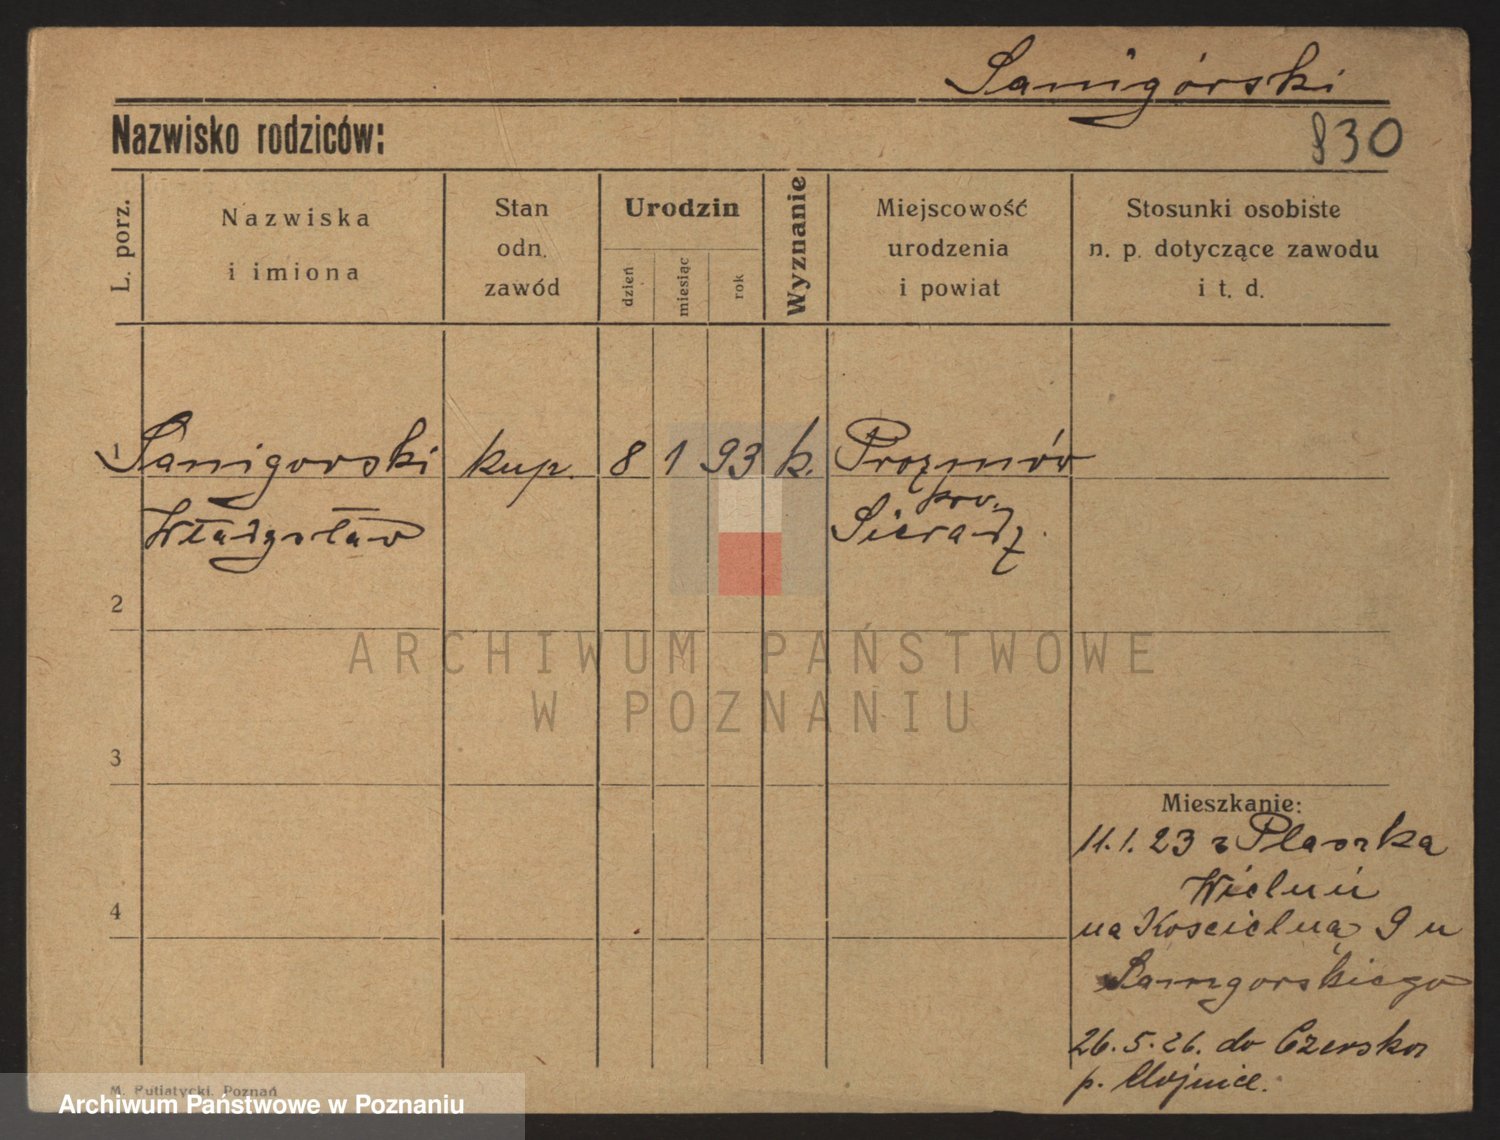 Sanigórski
830
Nazwisko rodziców:
L. porz.
Nazwiska
i imiona
Stan
odn.
zawód
Urodzin
dzień
miesiąc
rok
Wyznanie
Miejscowość
urodzenia
i powiat
Stosunki osobiste
n. p. dotyczące zawodu
i t. d.
1 Sanigorski kup. 8 1 93 k. Prozmów
pow.
Władysław Sieradz
2
ARCHIWUM PAŃSTWOWE
W POZNANIU
3
Mieszkanie:
11.1.23 z Plaszka
Wieluń
4
na Kościelną 9 u
Sanigorskiego
26.5.26. do Czerska
p. Chojnice.
M. Putiatycki, Poznań
Archiwum Państwowe w Poznaniu